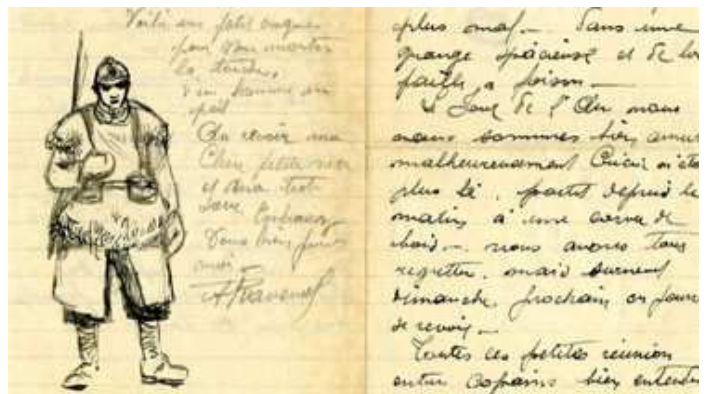 Voilà un petit croquis
pour vous montrer
la touche
d'un homme un
peu
Au revoir ma
Chère petite
et suis tout
Pour
Vous bien
ami
plus mal — Dans une
grange spacieuse et de la
paille à foison —
Le Jour de l'An nous
nous sommes bien amusé
malheureusement n'éta
plus là, partit depuis le
matin à une corvée de
bois — nous avons tous
regretter. mais surement
dimanche prochain on pourra
se revoir —
Toutes ces petites réunion
entre Copains bien entendu